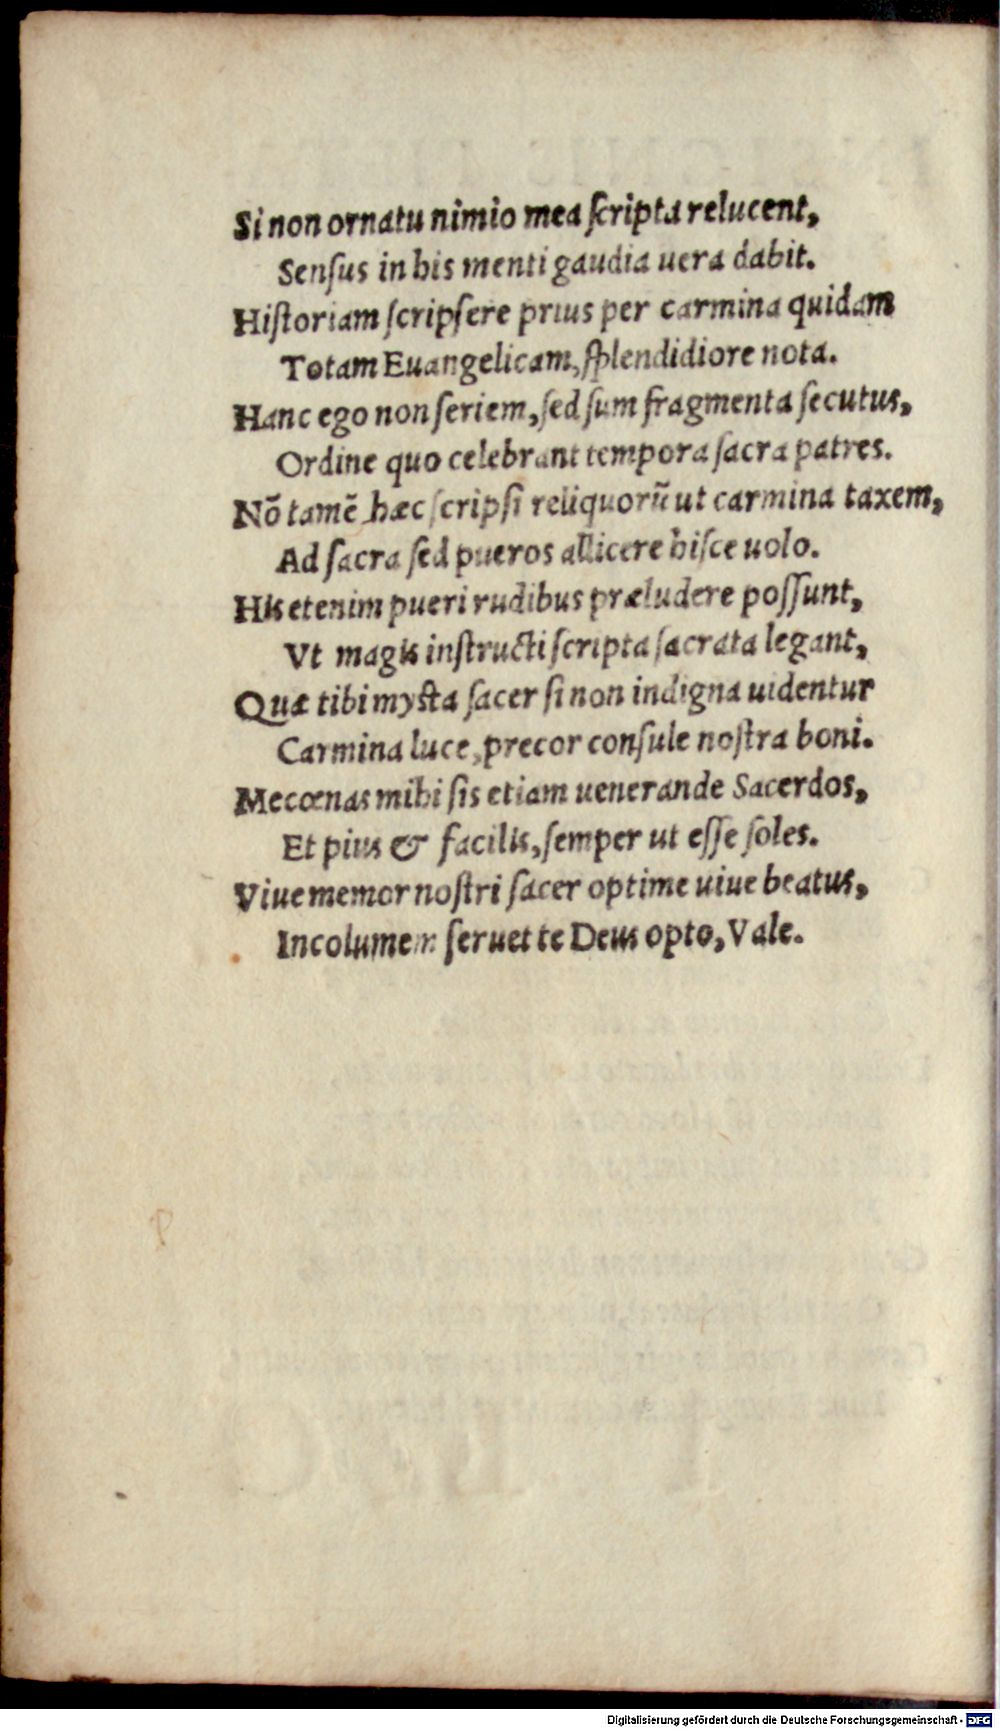 Si non ornatu nimio mea ſcripta relucent,
Senſus in his menti gaudia uera dabit.
Hiſtoriam ſcripſere prius per carmina quidam
Totam Euangelicam, ſplendidiore nota.
Hanc ego non ſeriem, ſed ſum fragmenta ſecutus,
Ordine quo celebrant tempora ſacra patres.
Nō tamē hæc ſcripſi reliquorū ut carmina taxem,
Ad ſacra ſed pueros allicere hiſce uolo.
His etenim pueri rudibus præludere poſſunt,
Vt magis inſtructi ſcripta ſacrata legant,
Quæ tibi myſta ſacer ſi non indigna uidentur
Carmina luce, precor conſule noſtra boni.
Mecœnas mihi ſis etiam uenerande Sacerdos,
Et pius & facilis, ſemper ut eſſe ſoles.
Viue memor noſtri ſacer optime uiue beatus,
Incolumem ſeruet te Deus opto, Vale.
Digitalisierung gefördert durch die Deutsche Forschungsgemeinschaft - DFG